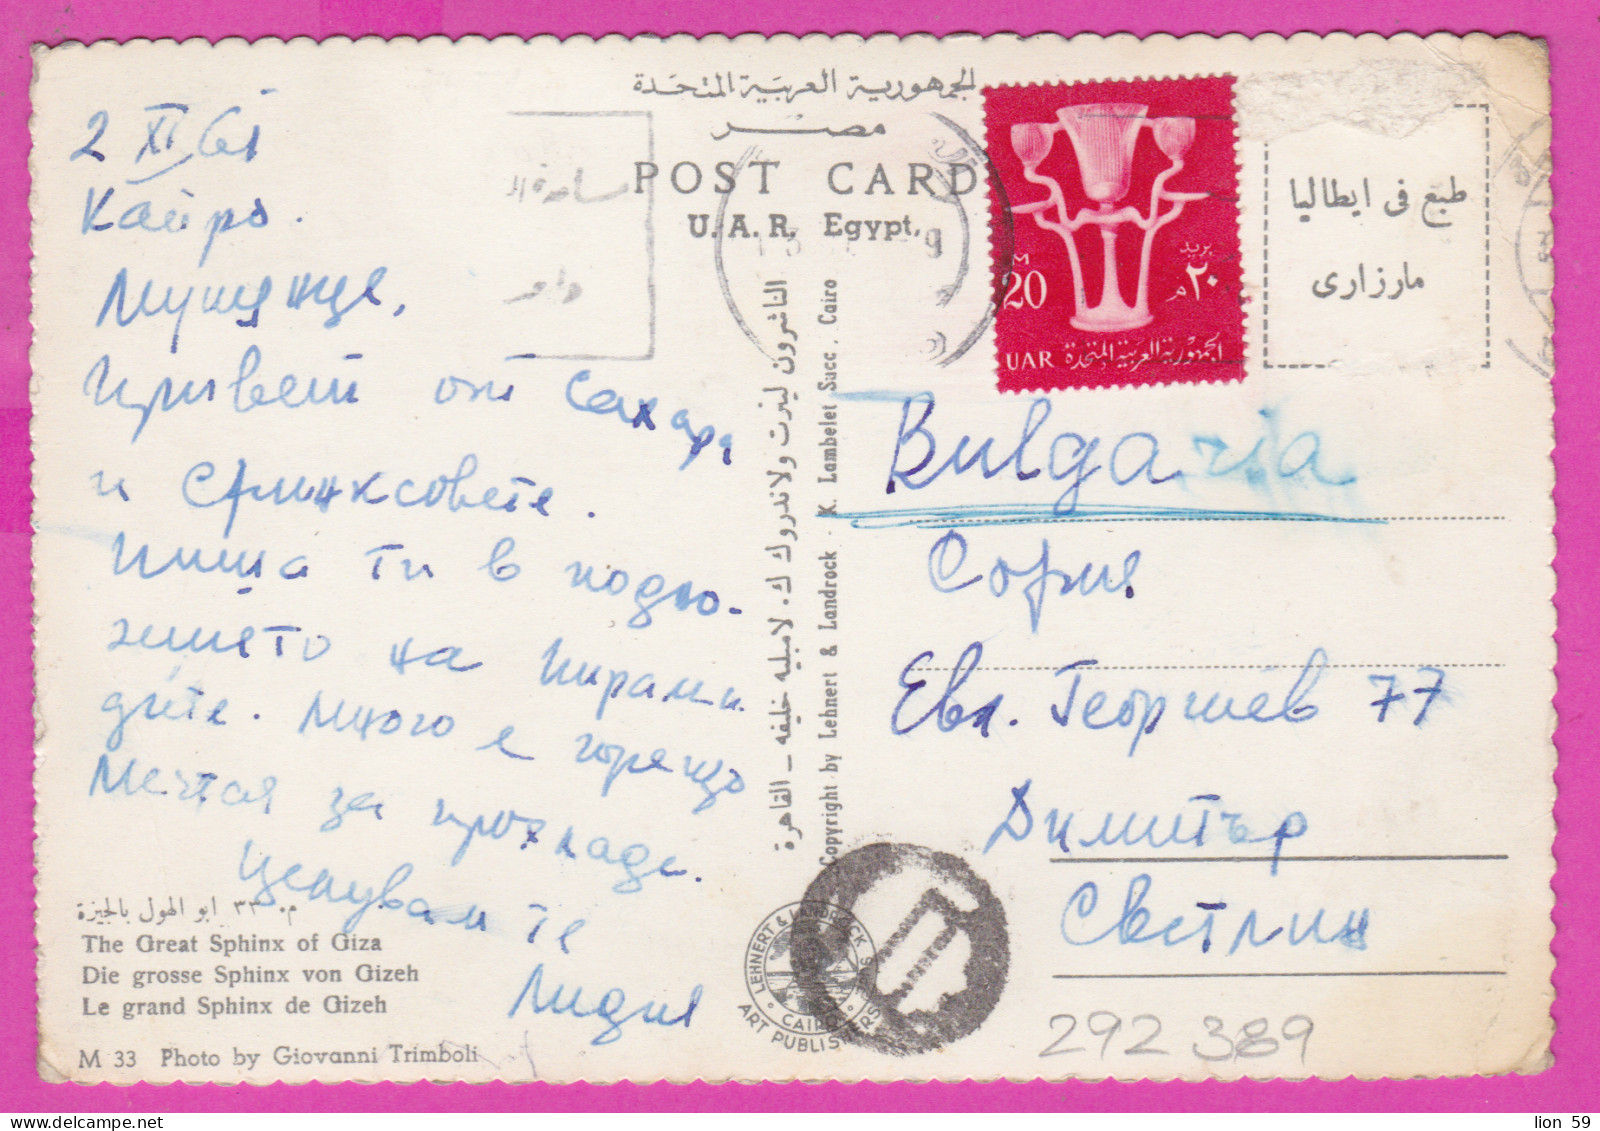 الجمهورية العربية المتحدة
مصر
POST CARD
U.A.R. Egypt.
2 XI 61
Кайро.
Мушенце,
Привет от Сахара
и Сфинксовете.
Пиша ти в подно-
жието на Пирами
дите. Много е горещо
Мечтая за прохлада.
Целувам те
Лидия
م. ٣٣ ابو الهول بالجيزة
The Great Sphinx of Giza
Die grosse Sphinx von Gizeh
Le grand Sphinx de Gizeh
M 33 Photo by Giovanni Trimboli
الناشرون لينرت ولاندروك ك. لامبليه خليفه – القاهرة
Copyright by Lehnert & Landrock - K. Lambelet Succ, Cairo
LEHNERT & LANDROCK SUCC.
CAIRO
ART PUBLISHERS
M
20
UAR
بريد
٢٠ م
الجمهورية العربية المتحدة
طبع فى ايطاليا
مارزارى
Bulgaria
София
Евл. Георгиев 77
Димитър
Светлин
292 389
lion 59